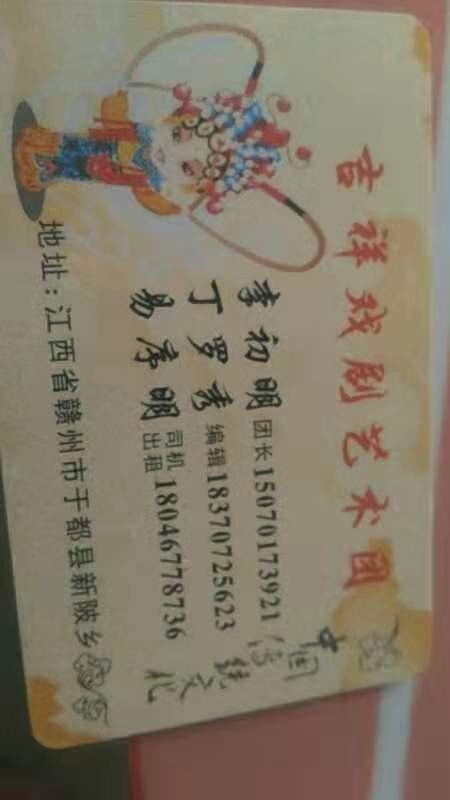 吉祥戏剧艺术团
李初明 团长 15070173921
丁罗秀 编辑 18370725623
易序明 司机出租 18046778736
地址:江西省赣州市于都县新陂乡
中国传统文化